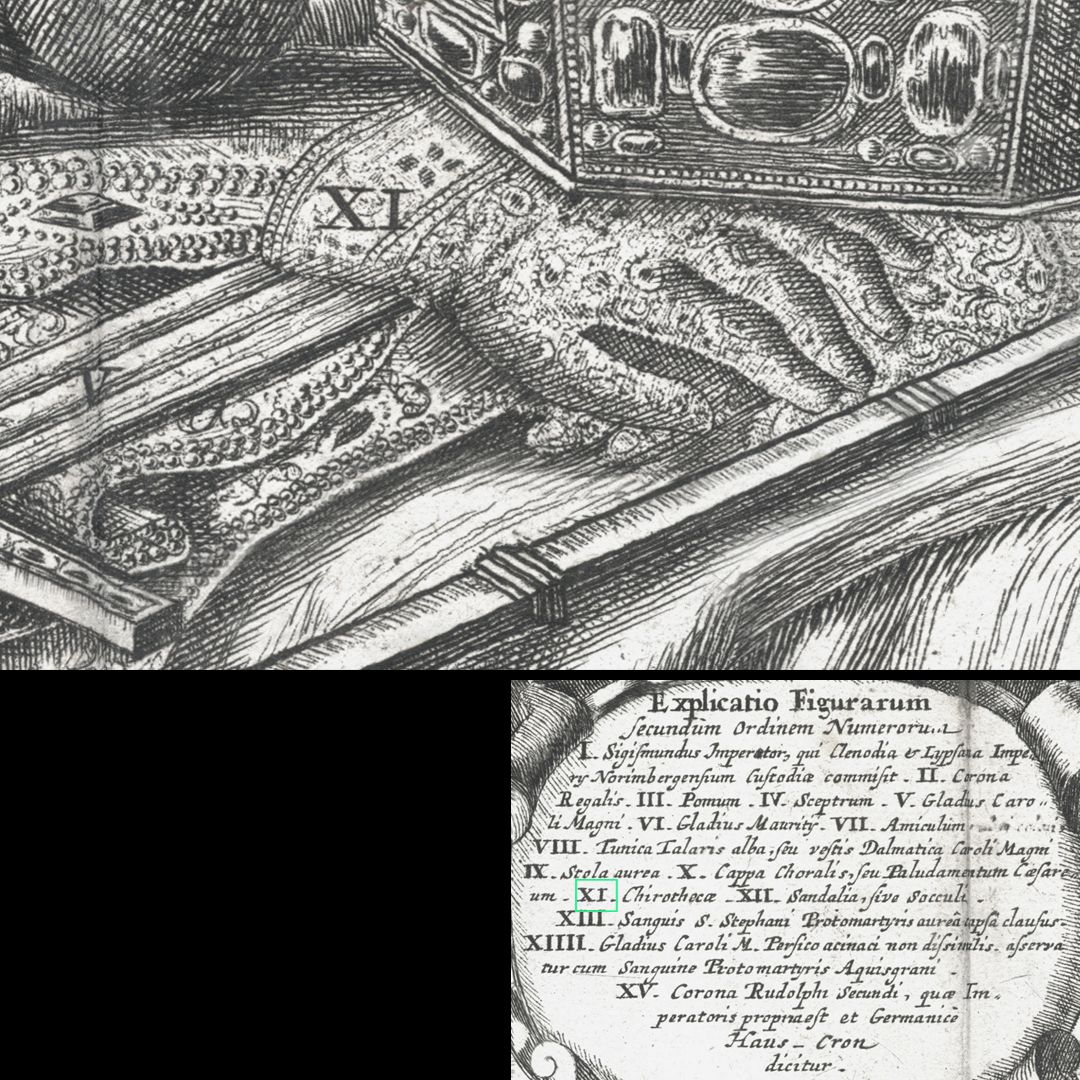 XI
V
Explicatio Figurarum
secundùm Ordinem Numeroru
I. Sigismundus Imperator, qui Clenodia & Lypsana Impe
ry Norimbergensium Custodiæ commisit. II. Corona
Regalis. III. Pomum. IV. Sceptrum. V. Gladus Caro
li Magni. VI. Gladius Maurity. VII. Amiculum
VIII. Tunica Talaris alba, seu vestis Dalmatica Caroli Magni
IX. Stola aurea. X. Cappa Choralis, seu Paludamentum Cæsare
um. XI. Chirothecæ XII. Sandalia, sive Socculi
XIII. Sanguis S. Stephani Protomartyris aureâ capsâ clausus
XIIII. Gladius Caroli M. Persico acinaci non dissimilis. asserva
tur cum Sanguine Protomartyris Aquisgrani
XV. Corona Rudolphi Secundi, quæ Im
peratoris propria est et Germanicè
Haus-Cron
dicitur.